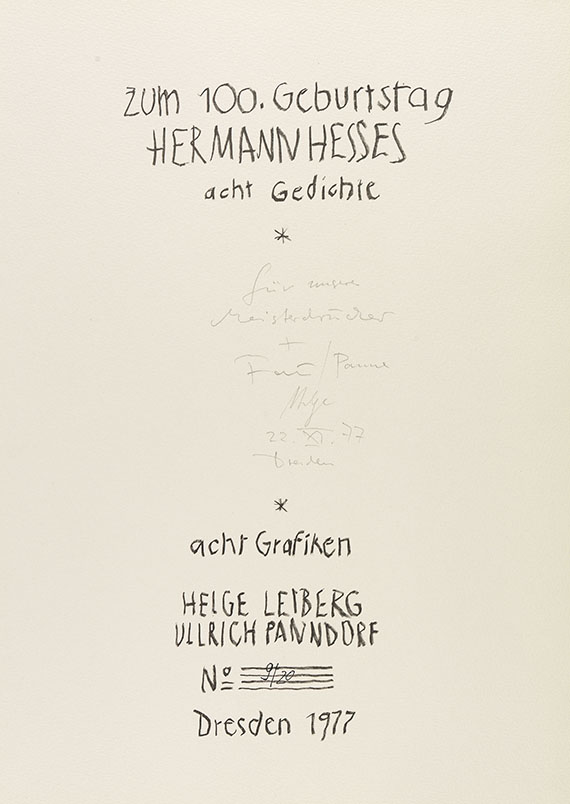 zum 100. Geburtstag
HERMANN HESSES
acht Gedichte
*
für unsere
Meisterdrucker
+
/ Panne
Helge
22. XI. 77
Dresden
*
acht Grafiken
HELGE LEIBERG
ULLRICH PANNDORF
No 9/20
Dresden 1977